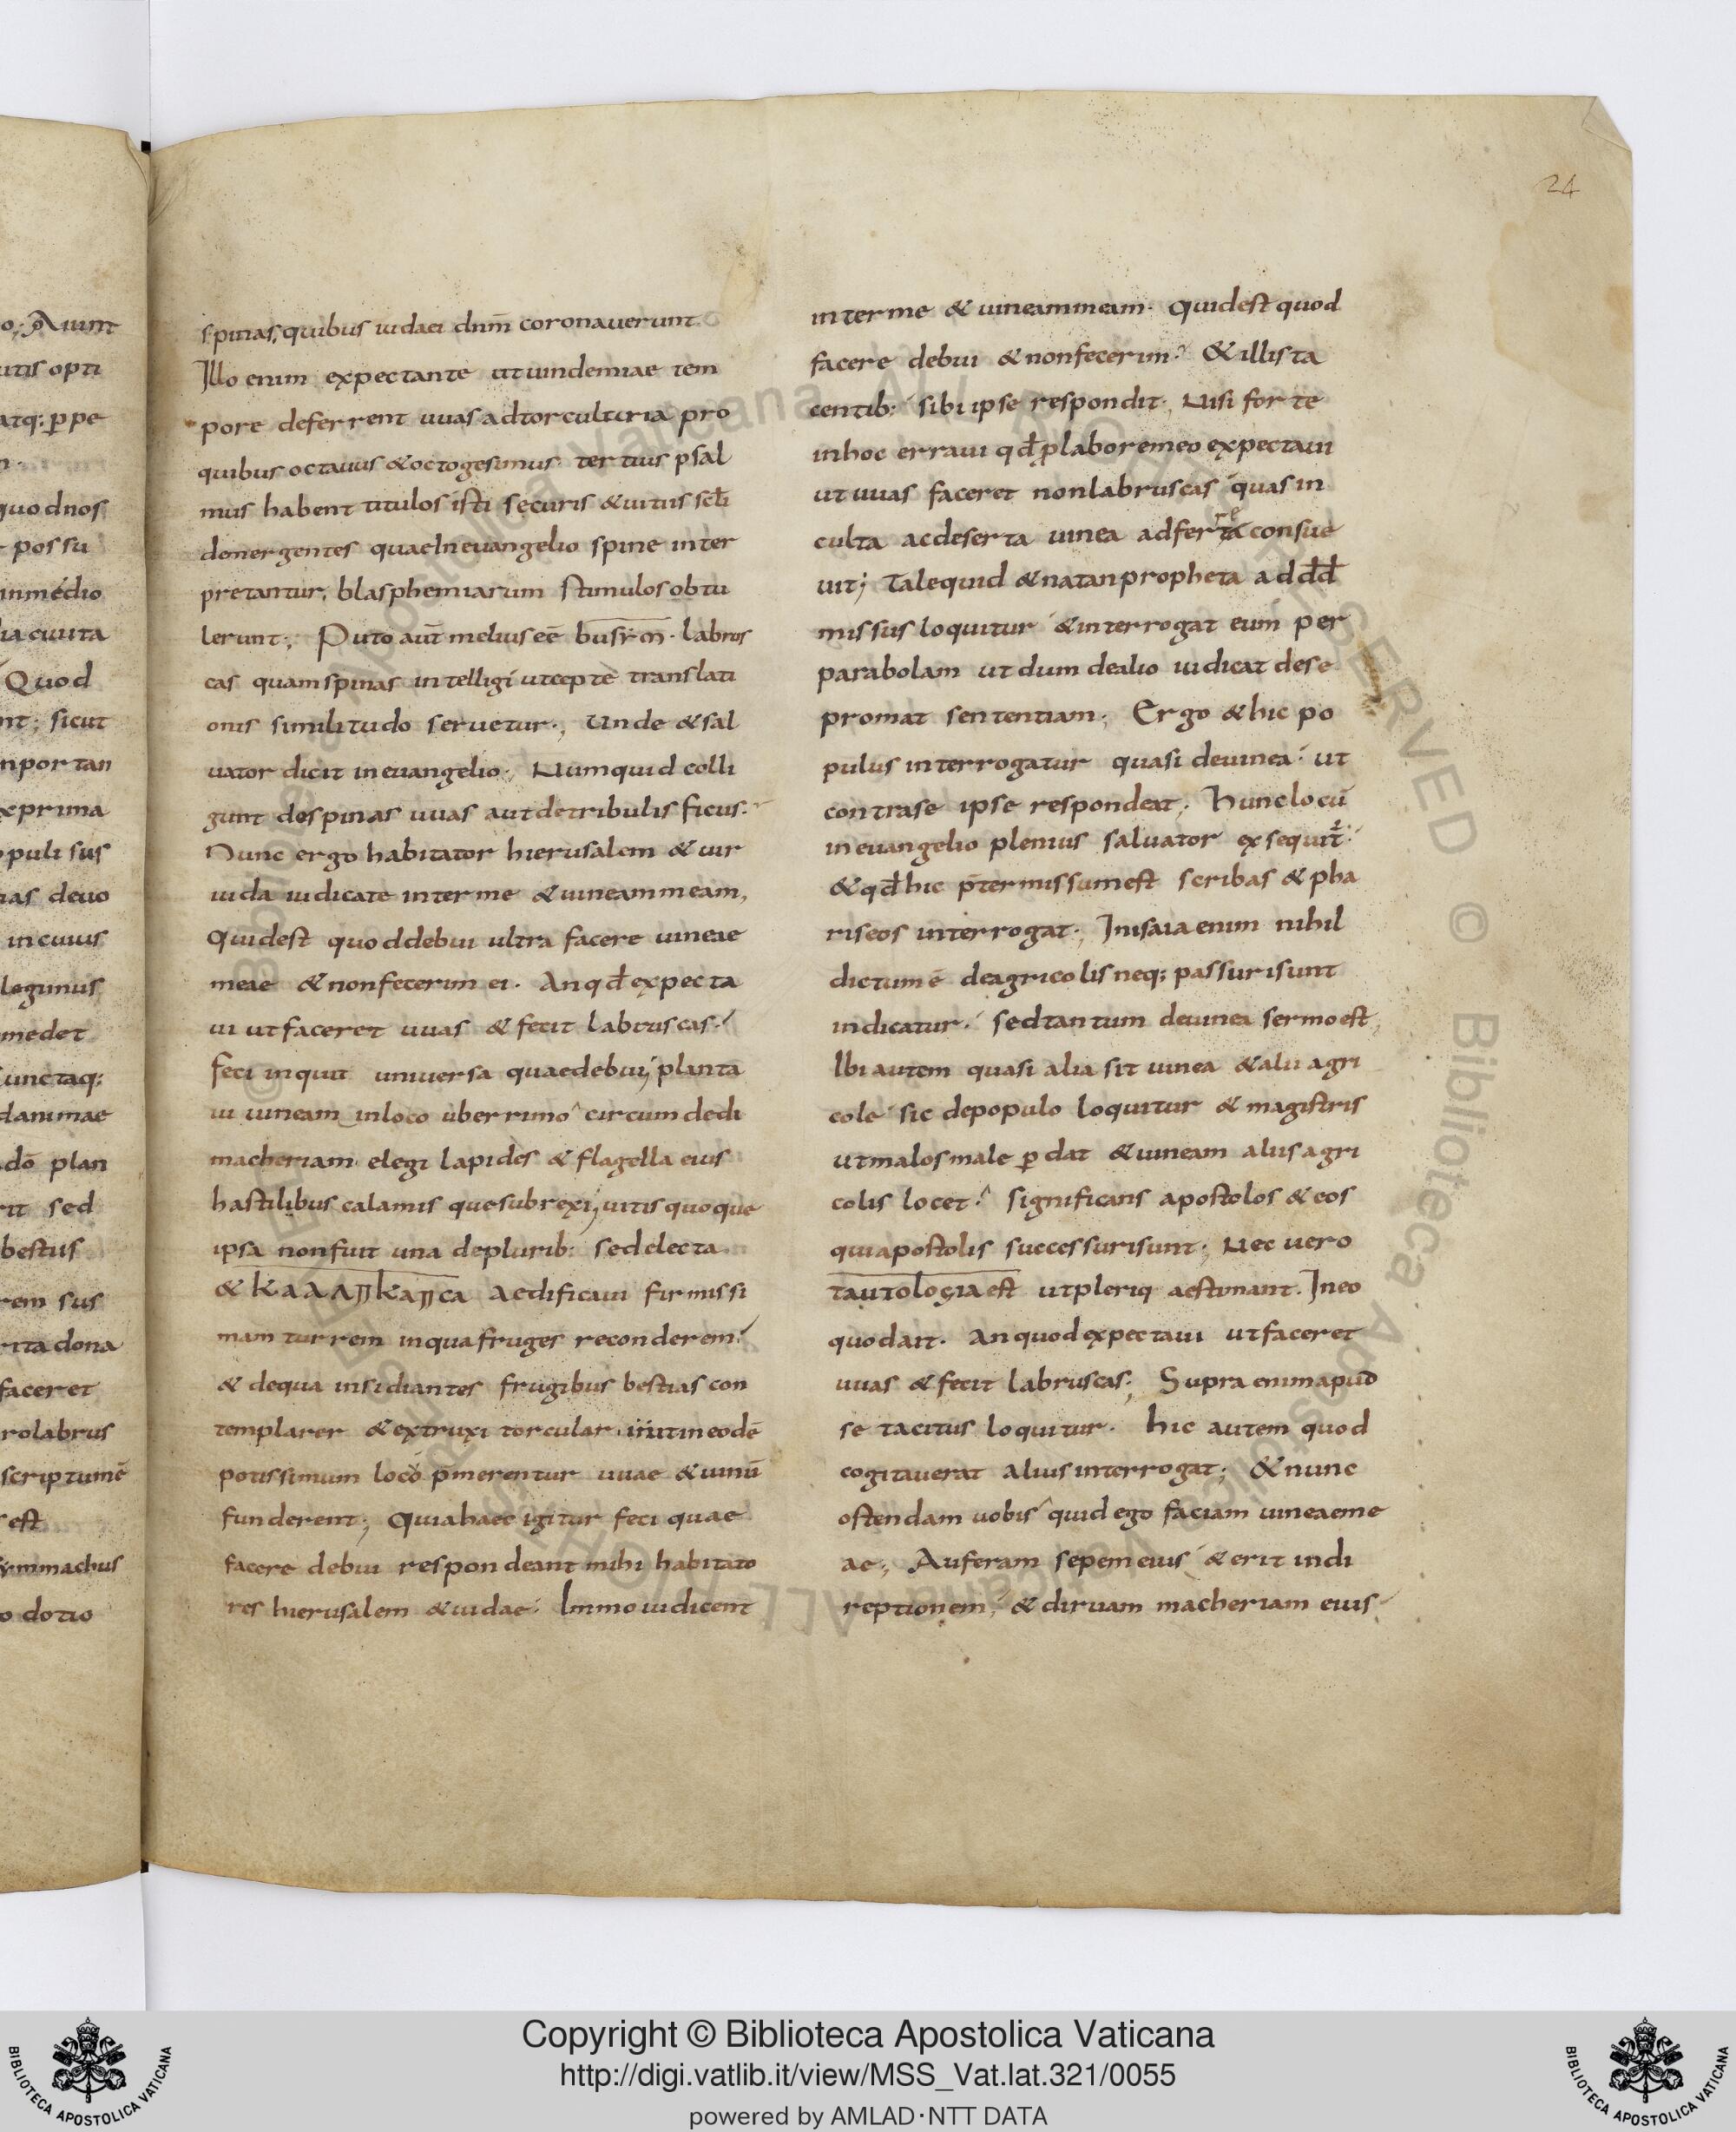 24
spinas, quibus iudaei dnm̄ coronauerunt
Illo enim expectante ut uindemiae tem
pore deferrent uuas ad torculuria pro
quibus octauus & octogesimus tertius psal
mus habent titulos isti securis & uitiis sc̄li
demergentes quae In euangelio spine inter
pretantur, blasphemiarum stimulos obtu
lerunt; Puto aut̄ melius eē labrus
cas quam spinas intelligi ut translati
onis similitudo seruetur; Unde & sal
uator dicit in euangelio; Numquid colli
gunt de spinas uuas aut de tribulis ficus.
Nunc ergo habitator hierusalem & uir
iuda iudicate inter me & uineam meam,
Quid est quod debui ultra facere uineae
meae & non fecerim ei. An qd̄ expecta
ui ut faceret uuas & fecit labruscas.
feci inquit uniuersa quae debui; planta
ui uineam in loco uberrimo circumdedi
macheriam elegi lapides & flagella eius
hastilibus calamis que subrexi; uitis quoque
ipsa non fuit una de plurib: sed electa
& aedificaui firmissi
mam turrem in qua fruges reconderem
& de qua insidiantes frugibus bestias con
templarer & extruxi torcular, ut in eodē
potissimum loco p̄merentur uuae & uinū
funderent; Quia haec igitur feci quae
facere debui respondeant mihi habitato
res hierusalem & iudae. Immo iudicent
inter me & uineam meam. Quid est quod
facere debui & non fecerim? & illis ta
centib: sibi ipse respondit. Nisi forte
in hoc erraui qd̄ p labore meo expectaui
ut uuas faceret non labruscas quas in
culta ac deserta uinea adferre consue
uit; Tale quid & natan propheta ad dd̄
missus loquitur & interrogat eum per
parabolam ut dum de alio iudicat de se
promat sententiam; Ergo & hic po
pulus interrogatur quasi de uinea ut
contra se ipse respondeat; Hunc locū
in euangelio plenius saluator exsequit̄
& qd̄ hic p̄termissum est scribas & pha
riseos interrogat; In isaia enim nihil
dictum ē de agricolis neq; passuri sunt
indicatur. sed tantum de uinea sermo est,
Ibi autem quasi alia sit uinea & alii agri
cole sic de populo loquitur & magistris
ut malos male p̱dat & uineam aliis agri
colis locet. significans apostolos & eos
qui apostolis successuri sunt; Nec uero
tautologia est ut pleriq aestimant. In eo
quod ait. An quod expectaui ut faceret
uuas & fecit labruscas; Supra enim apud
se tacitus loquitur. hic autem quod
cogitauerat alius interrogat; & nunc
ostendam uobis quid ego faciam uineae me
ae; Auferam sepem eius & erit in di
reptionem, & diruam macheriam eius
Copyright © Biblioteca Apostolica Vaticana
http://digi.vatlib.it/view/MSS_Vat.lat.321/0055
powered by AMLAD·NTT DATA
BIBLIOTECA APOSTOLICA VATICANA
BIBLIOTECA APOSTOLICA VATICANA